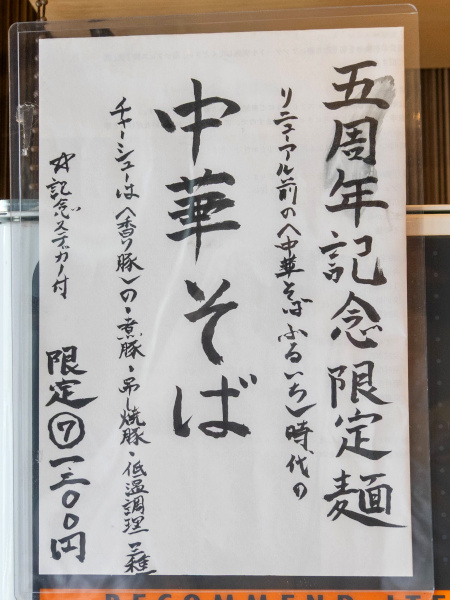 五周年記念限定麺
リニューアル前の〈中華そば ふるいち〉時代の
中華そば
チャーシューは〈香り豚〉の・煮豚・吊し焼豚・低温調理 三種
☆記念ステッカー付
限定⑦一三〇〇円
RECOMMEND ITE